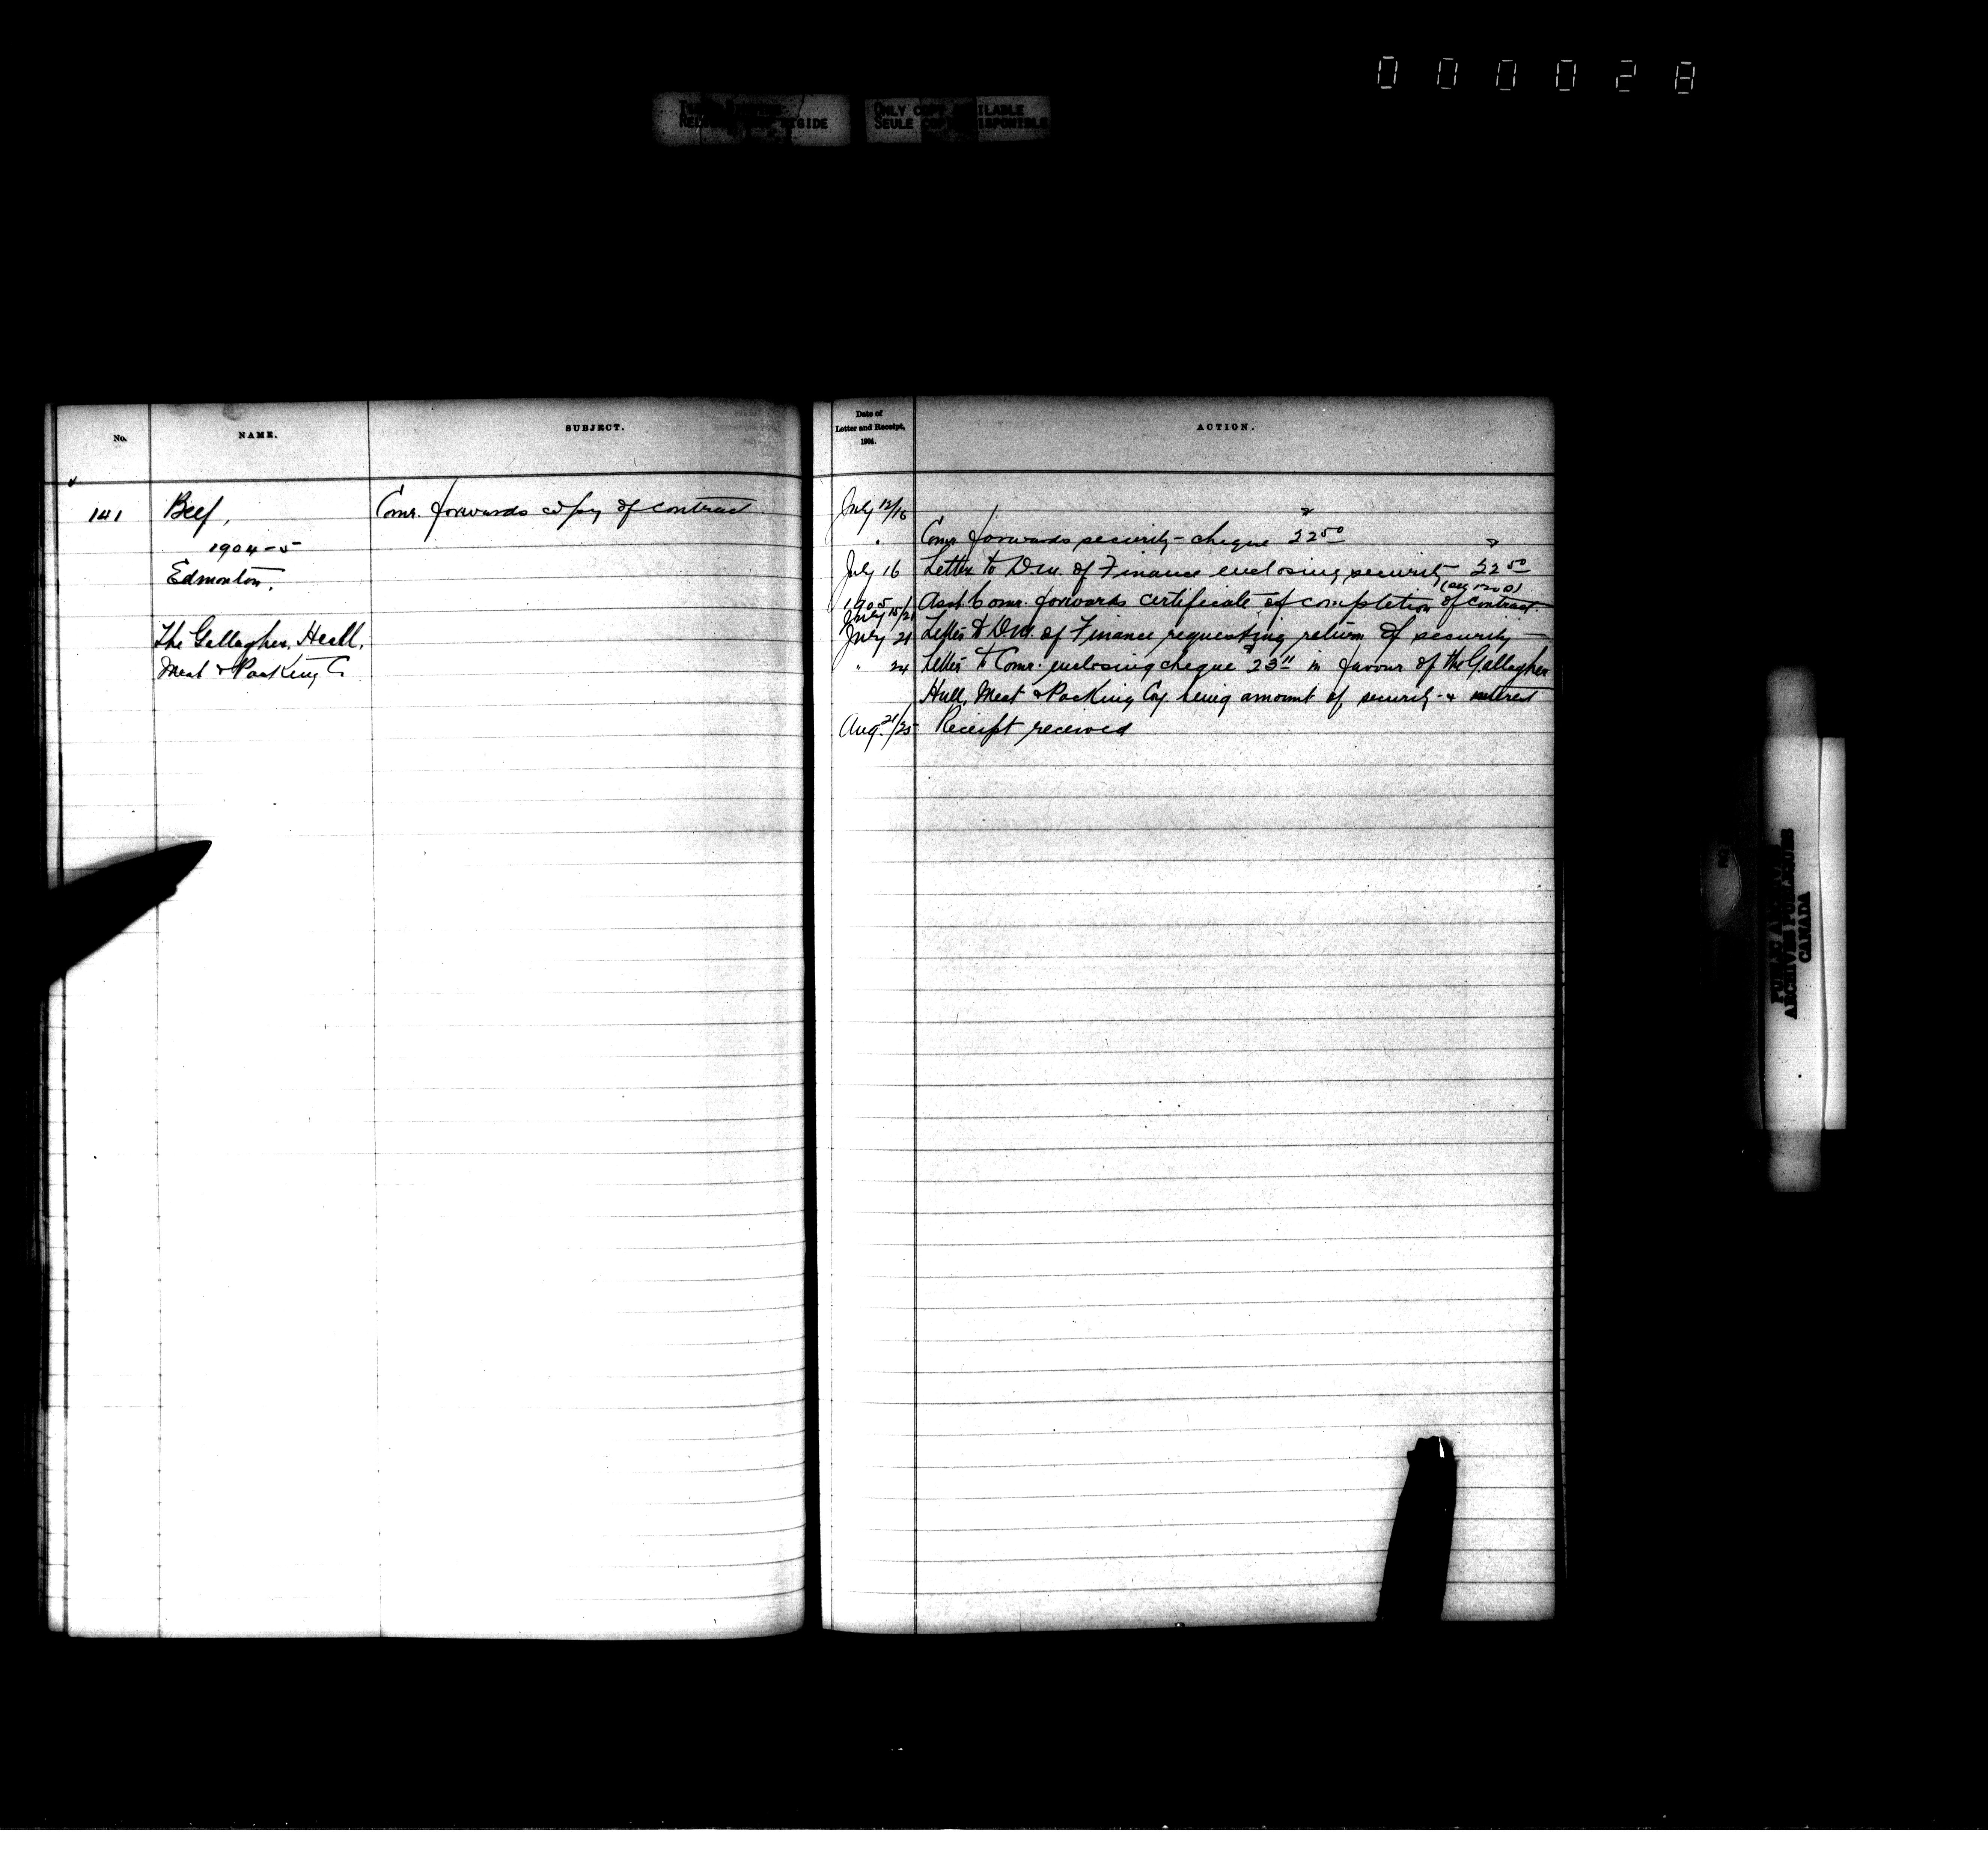 000028
ONLY COPY AVAILABLE
SEULE COPIE DISPONIBLE
No.
NAME.
SUBJECT.
141
Beef,
Comr. forwards copy of contract
1904-5
Edmonton.
The Gallagher, Hull,
Meat & Packing Co
Date of
Letter and Receipt,
1904.
ACTION.
July 12/16
" Comr. forwards security - cheque $22 50
July 16 Letter to D.M. of Finance enclosing security $22 50
1905
July 15/21 Asst Comr. forwards certificate of completion of contract.
July 21 Letter to D.M. of Finance requesting return of security
" 24 Letter to Comr. enclosing cheque $23 11 in favour of the Gallagher
Hull, Meat & Packing Coy. being amount of security & interest
Aug. 21/25 Receipt received
PUBLIC ARCHIVES
ARCHIVES PUBLIQUES
CANADA